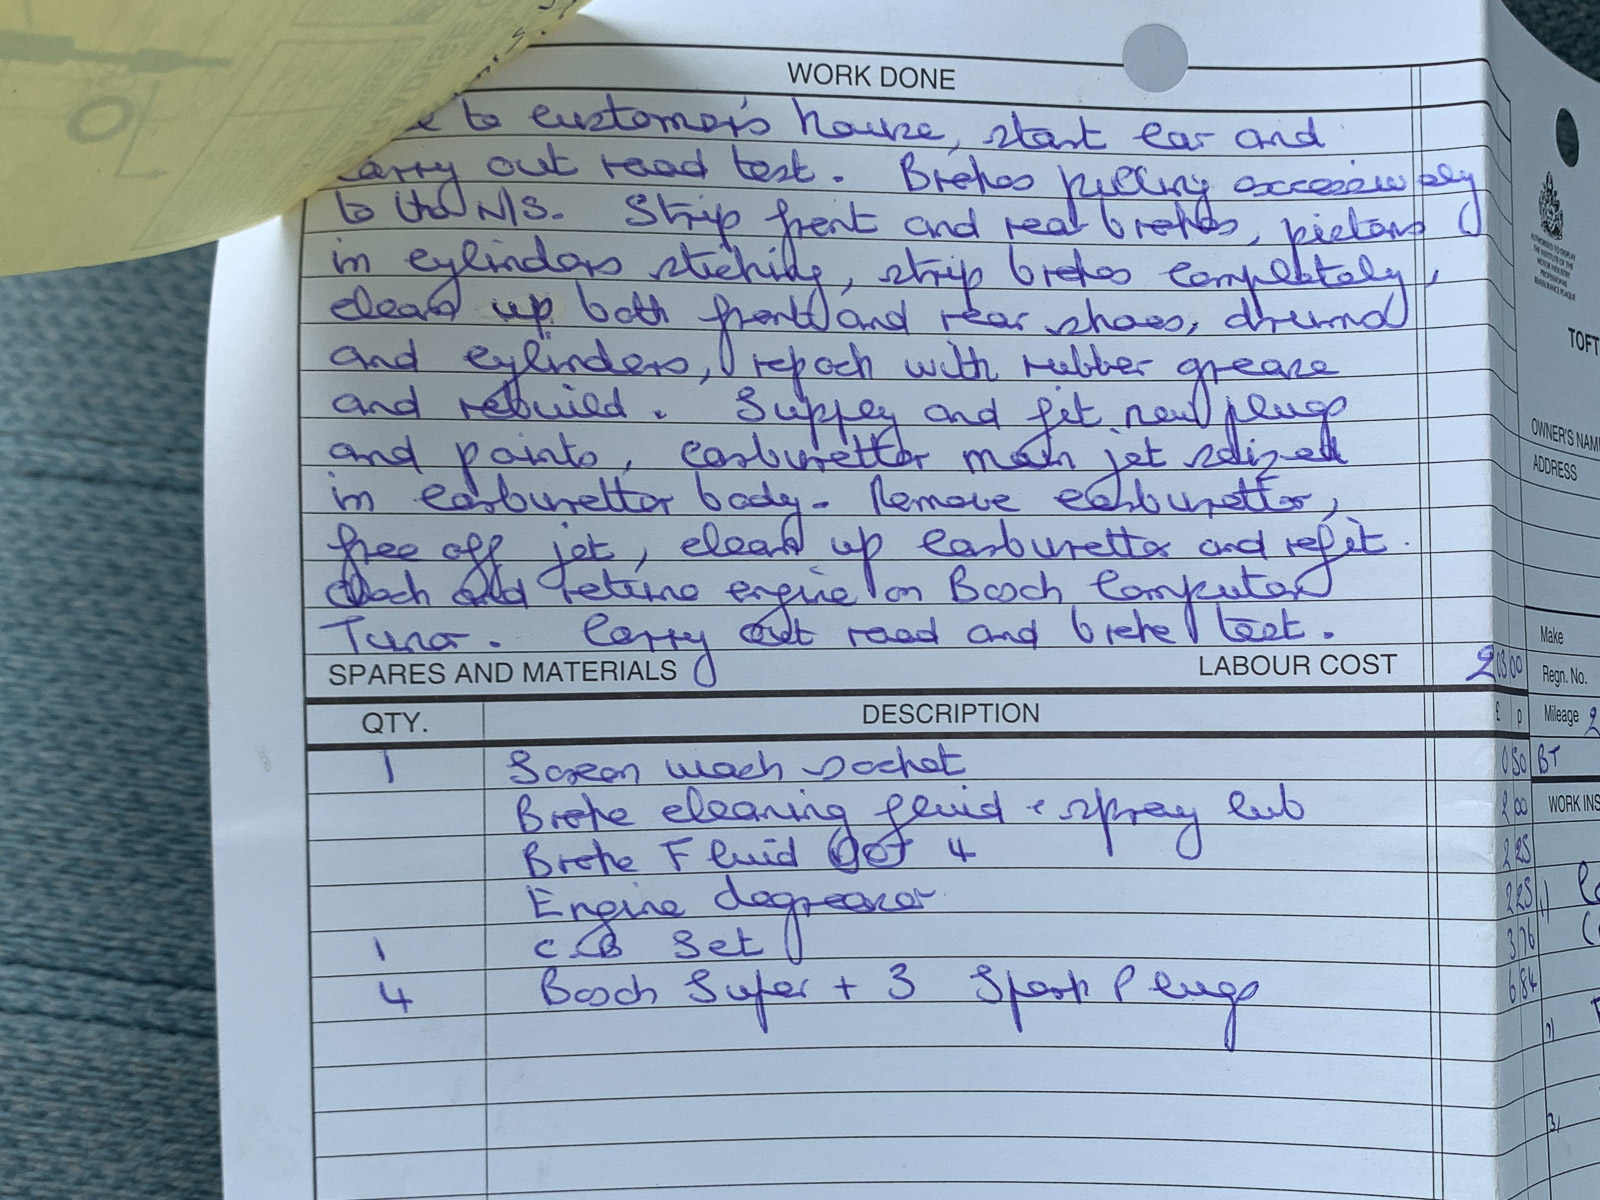 WORK DONE
to customer's house, start car and
carry out road test. Brakes pulling excessively
to the N/S. Strip front and rear brakes, pistons
in cylinders sticking, strip brakes completely,
clean up both front and rear shoes, drums
and cylinders, repack with rubber grease
and rebuild. Supply and fit new plugs
and points, carburettor main jet seized
in carburettor body. Remove carburettor,
free off jet, clean up carburettor and refit.
and retune engine on Bosch Computer
Tuner. Carry out road and brake test.
SPARES AND MATERIALS LABOUR COST 203 00
QTY. DESCRIPTION £ p
1 Screen wash socket 0 50
Brake cleaning fluid & spray lub 2 00
Brake Fluid Dot 4 2 25
Engine degreaser 2 25
1 C.B Set 3 76
4 Bosch Super + 3 Spark Plugs 6 84
TOFT
OWNER'S NAM
ADDRESS
Make
Regn. No.
Mileage 2
BT
WORK INS
1)
2)
3)